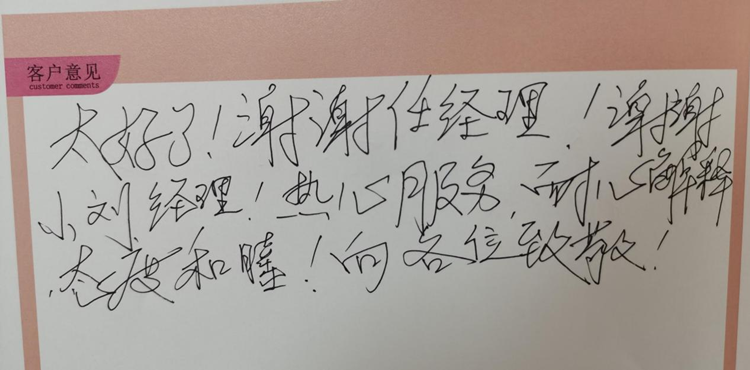 客户意见
customer comments
太好了！谢谢任经理！谢谢
小刘经理！热心服务，耐心解释
态度和睦！向各位致敬！